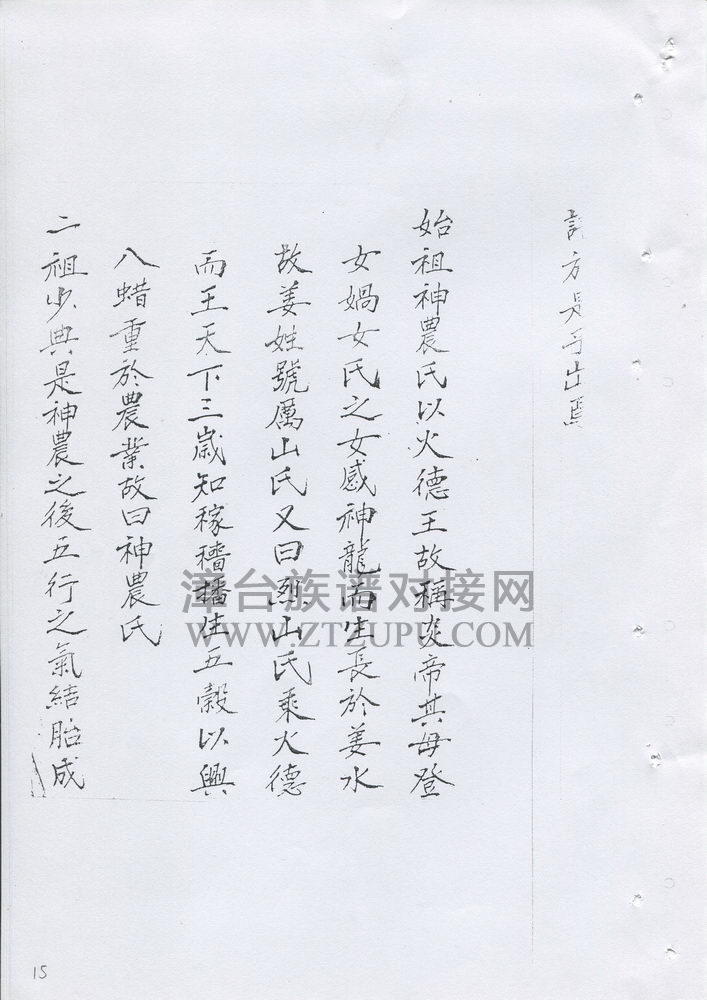 方
始祖神農氏以火德王故稱炎帝其母登
女媧女氏之女感神龍而生長於姜水
故姜姓號厲山氏又曰烈山氏乘火德
而王天下三歲知稼穡播生五穀以興
八蜡重於農業故曰神農氏
二祖少典是神農之後五行之氣結胎成
漳台族谱对接网
WWW.ZTZUPU.COM
15